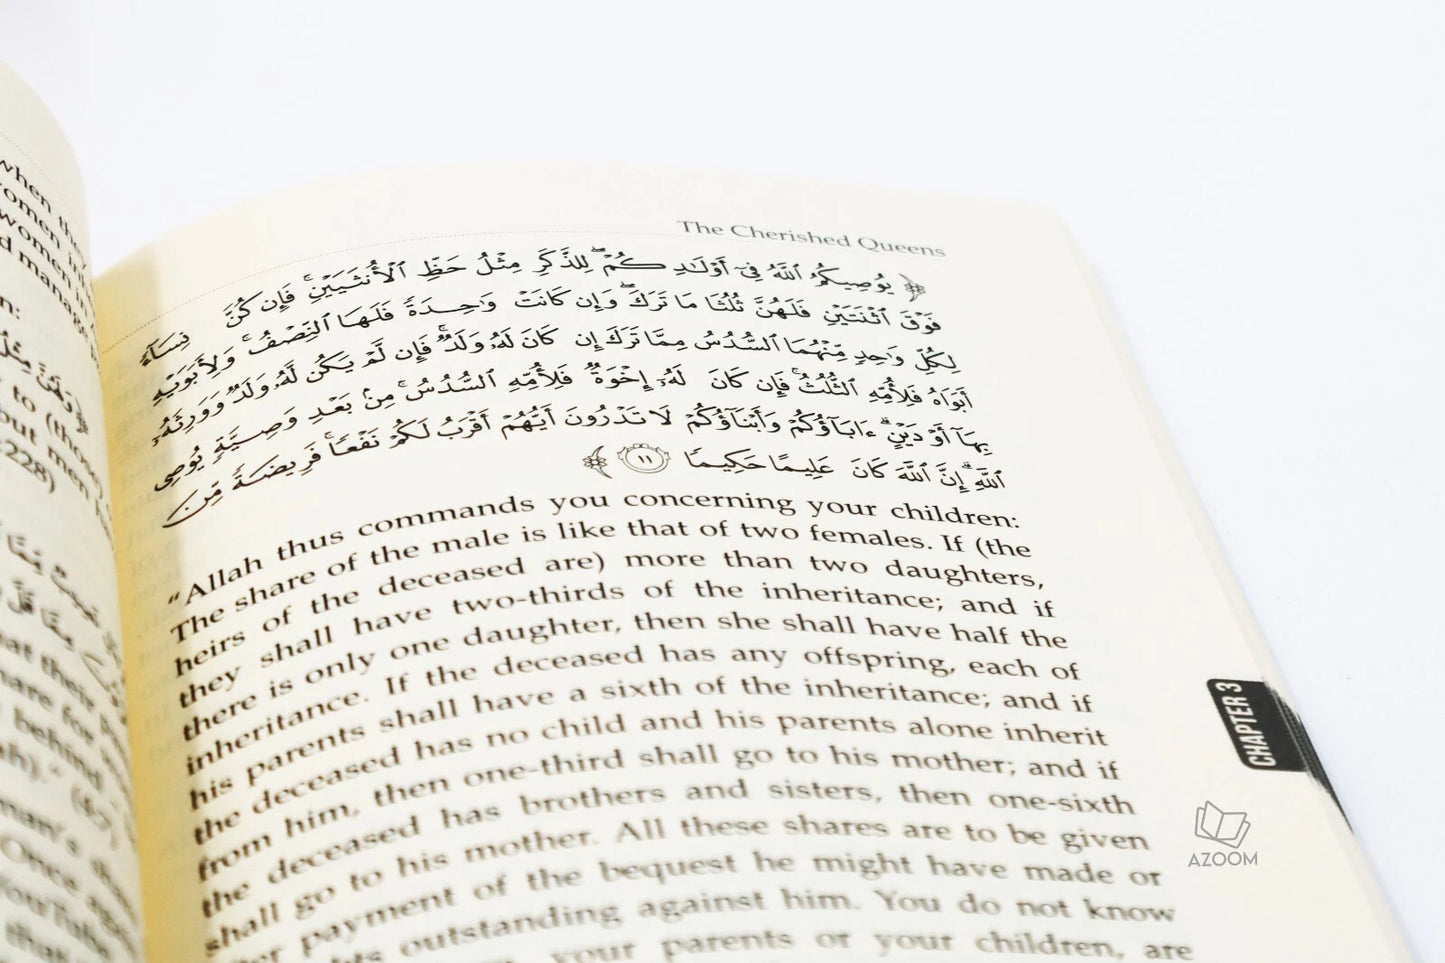 when the
women in
women
d manage
n:
to (those
but men
:228)
The Cherished Queens
﴿ يُوصِيكُمُ ٱللَّهُ فِىٓ أَوْلَـٰدِكُمْ ۖ لِلذَّكَرِ مِثْلُ حَظِّ ٱلْأُنثَيَيْنِ ۚ فَإِن كُنَّ نِسَآءً
فَوْقَ ٱثْنَتَيْنِ فَلَهُنَّ ثُلُثَا مَا تَرَكَ ۖ وَإِن كَانَتْ وَٰحِدَةً فَلَهَا ٱلنِّصْفُ ۚ وَلِأَبَوَيْهِ
لِكُلِّ وَٰحِدٍ مِّنْهُمَا ٱلسُّدُسُ مِمَّا تَرَكَ إِن كَانَ لَهُۥ وَلَدٌ ۚ فَإِن لَّمْ يَكُن لَّهُۥ وَلَدٌ وَوَرِثَهُۥٓ
أَبَوَاهُ فَلِأُمِّهِ ٱلثُّلُثُ ۚ فَإِن كَانَ لَهُۥٓ إِخْوَةٌ فَلِأُمِّهِ ٱلسُّدُسُ ۚ مِنۢ بَعْدِ وَصِيَّةٍ يُوصِى
بِهَآ أَوْ دَيْنٍ ۗ ءَابَآؤُكُمْ وَأَبْنَآؤُكُمْ لَا تَدْرُونَ أَيُّهُمْ أَقْرَبُ لَكُمْ نَفْعًا ۚ فَرِيضَةً مِّنَ
ٱللَّهِ ۗ إِنَّ ٱللَّهَ كَانَ عَلِيمًا حَكِيمًا ١١ ﴾
"Allah thus commands you concerning your children:
The share of the male is like that of two females. If (the
heirs of the deceased are) more than two daughters,
they shall have two-thirds of the inheritance; and if
there is only one daughter, then she shall have half the
inheritance. If the deceased has any offspring, each of
his parents shall have a sixth of the inheritance; and if
the deceased has no child and his parents alone inherit
from him, then one-third shall go to his mother; and if
the deceased has brothers and sisters, then one-sixth
shall go to his mother. All these shares are to be given
payment of the bequest he might have made or
outstanding against him. You do not know
your parents or your children, are
CHAPTER 3
AZOOM